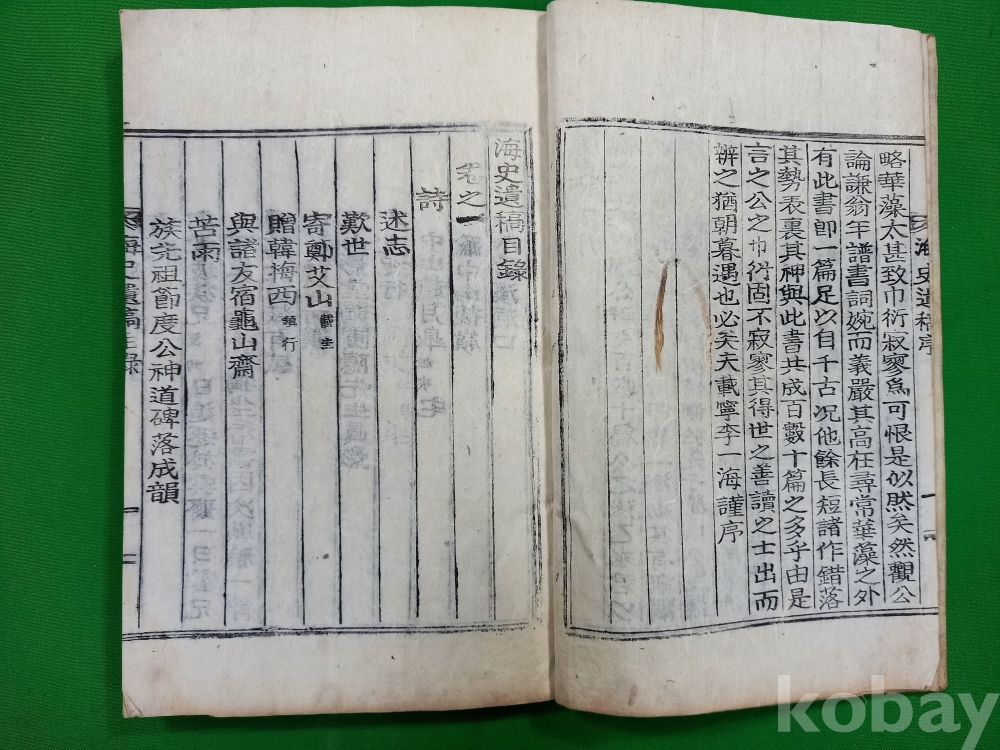 略華藻太甚致巾衍寂寥爲可恨是似然矣然觀公
論謙翁年譜書詞婉而義嚴其高在尋常華藻之外
有此書卽一篇足以自千古况他餘長短諸作錯落
其勢表裏其神與此書共成百數十篇之多乎由是
言之公之巾衍固不寂寥其得世之善讀之士出而
辨之猶朝暮遇也必矣夫載寧李一海謹序
海史遺稿序
一
海史遺稿目錄
卷之一
詩
述志
歎世
寄鄭艾山 載圭
贈韓梅西 鎮行
與諸友宿龜山齋
苦雨
族先祖節度公神道碑落成韻
海史遺稿目錄
一
kobay